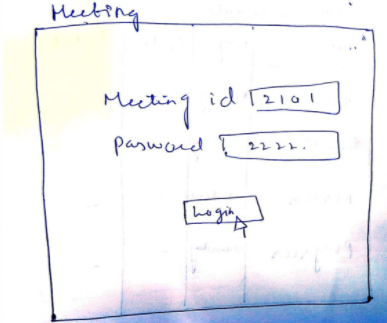 Meeting
Meeting id 2101
Password 2222.
Login